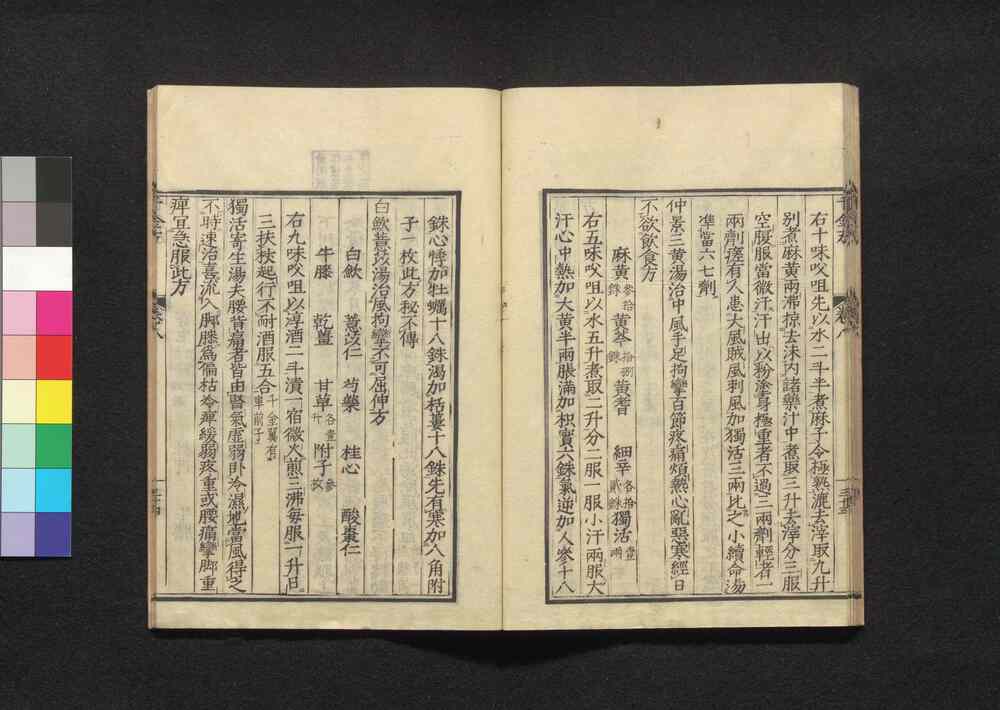 右十味㕮咀先以水二斗半煮麻子令極熟漉去滓取九升
別煮麻黄兩沸掠去沫内諸藥汁中煮取三升去滓分三服
空腹服當微汗汗出以粉塗身極重者不過三兩劑輕者一
兩劑瘥有人患大風賊風刺風加獨活三兩比之小續命湯
准當六七劑
仲景三黄湯治中風手足拘攣百節疼痛煩熱心亂惡寒經日
不欲飲食方
麻黄參拾銖 黄芩拾捌銖 黄耆 細辛各拾貳銖 獨活壹兩
右五味㕮咀以水五升煮取二升分二服一服小汗兩服大
汗心中熱加大黄半兩脹滿加枳實六銖氣逆加人參十八
銖心悸加牡蠣十八銖渴加栝蔞十八銖先有寒加八角附
子一枚此方秘不傳
白歛薏苡湯治風拘攣不可屈伸方
白歛 薏苡仁 芍藥 桂心 酸棗仁
牛膝 乾薑 甘草各壹升 附子參枚
右九味㕮咀以淳酒二斗漬一宿微火煎三沸每服一升日
三扶杖起行不耐酒服五合千金翼有車前子
獨活寄生湯夫腰背痛者皆由腎氣虚弱卧冷濕地當風得之
不時速治喜流入脚膝爲偏枯冷痺緩弱疼重或腰痛攣脚重
痺宜急服此方